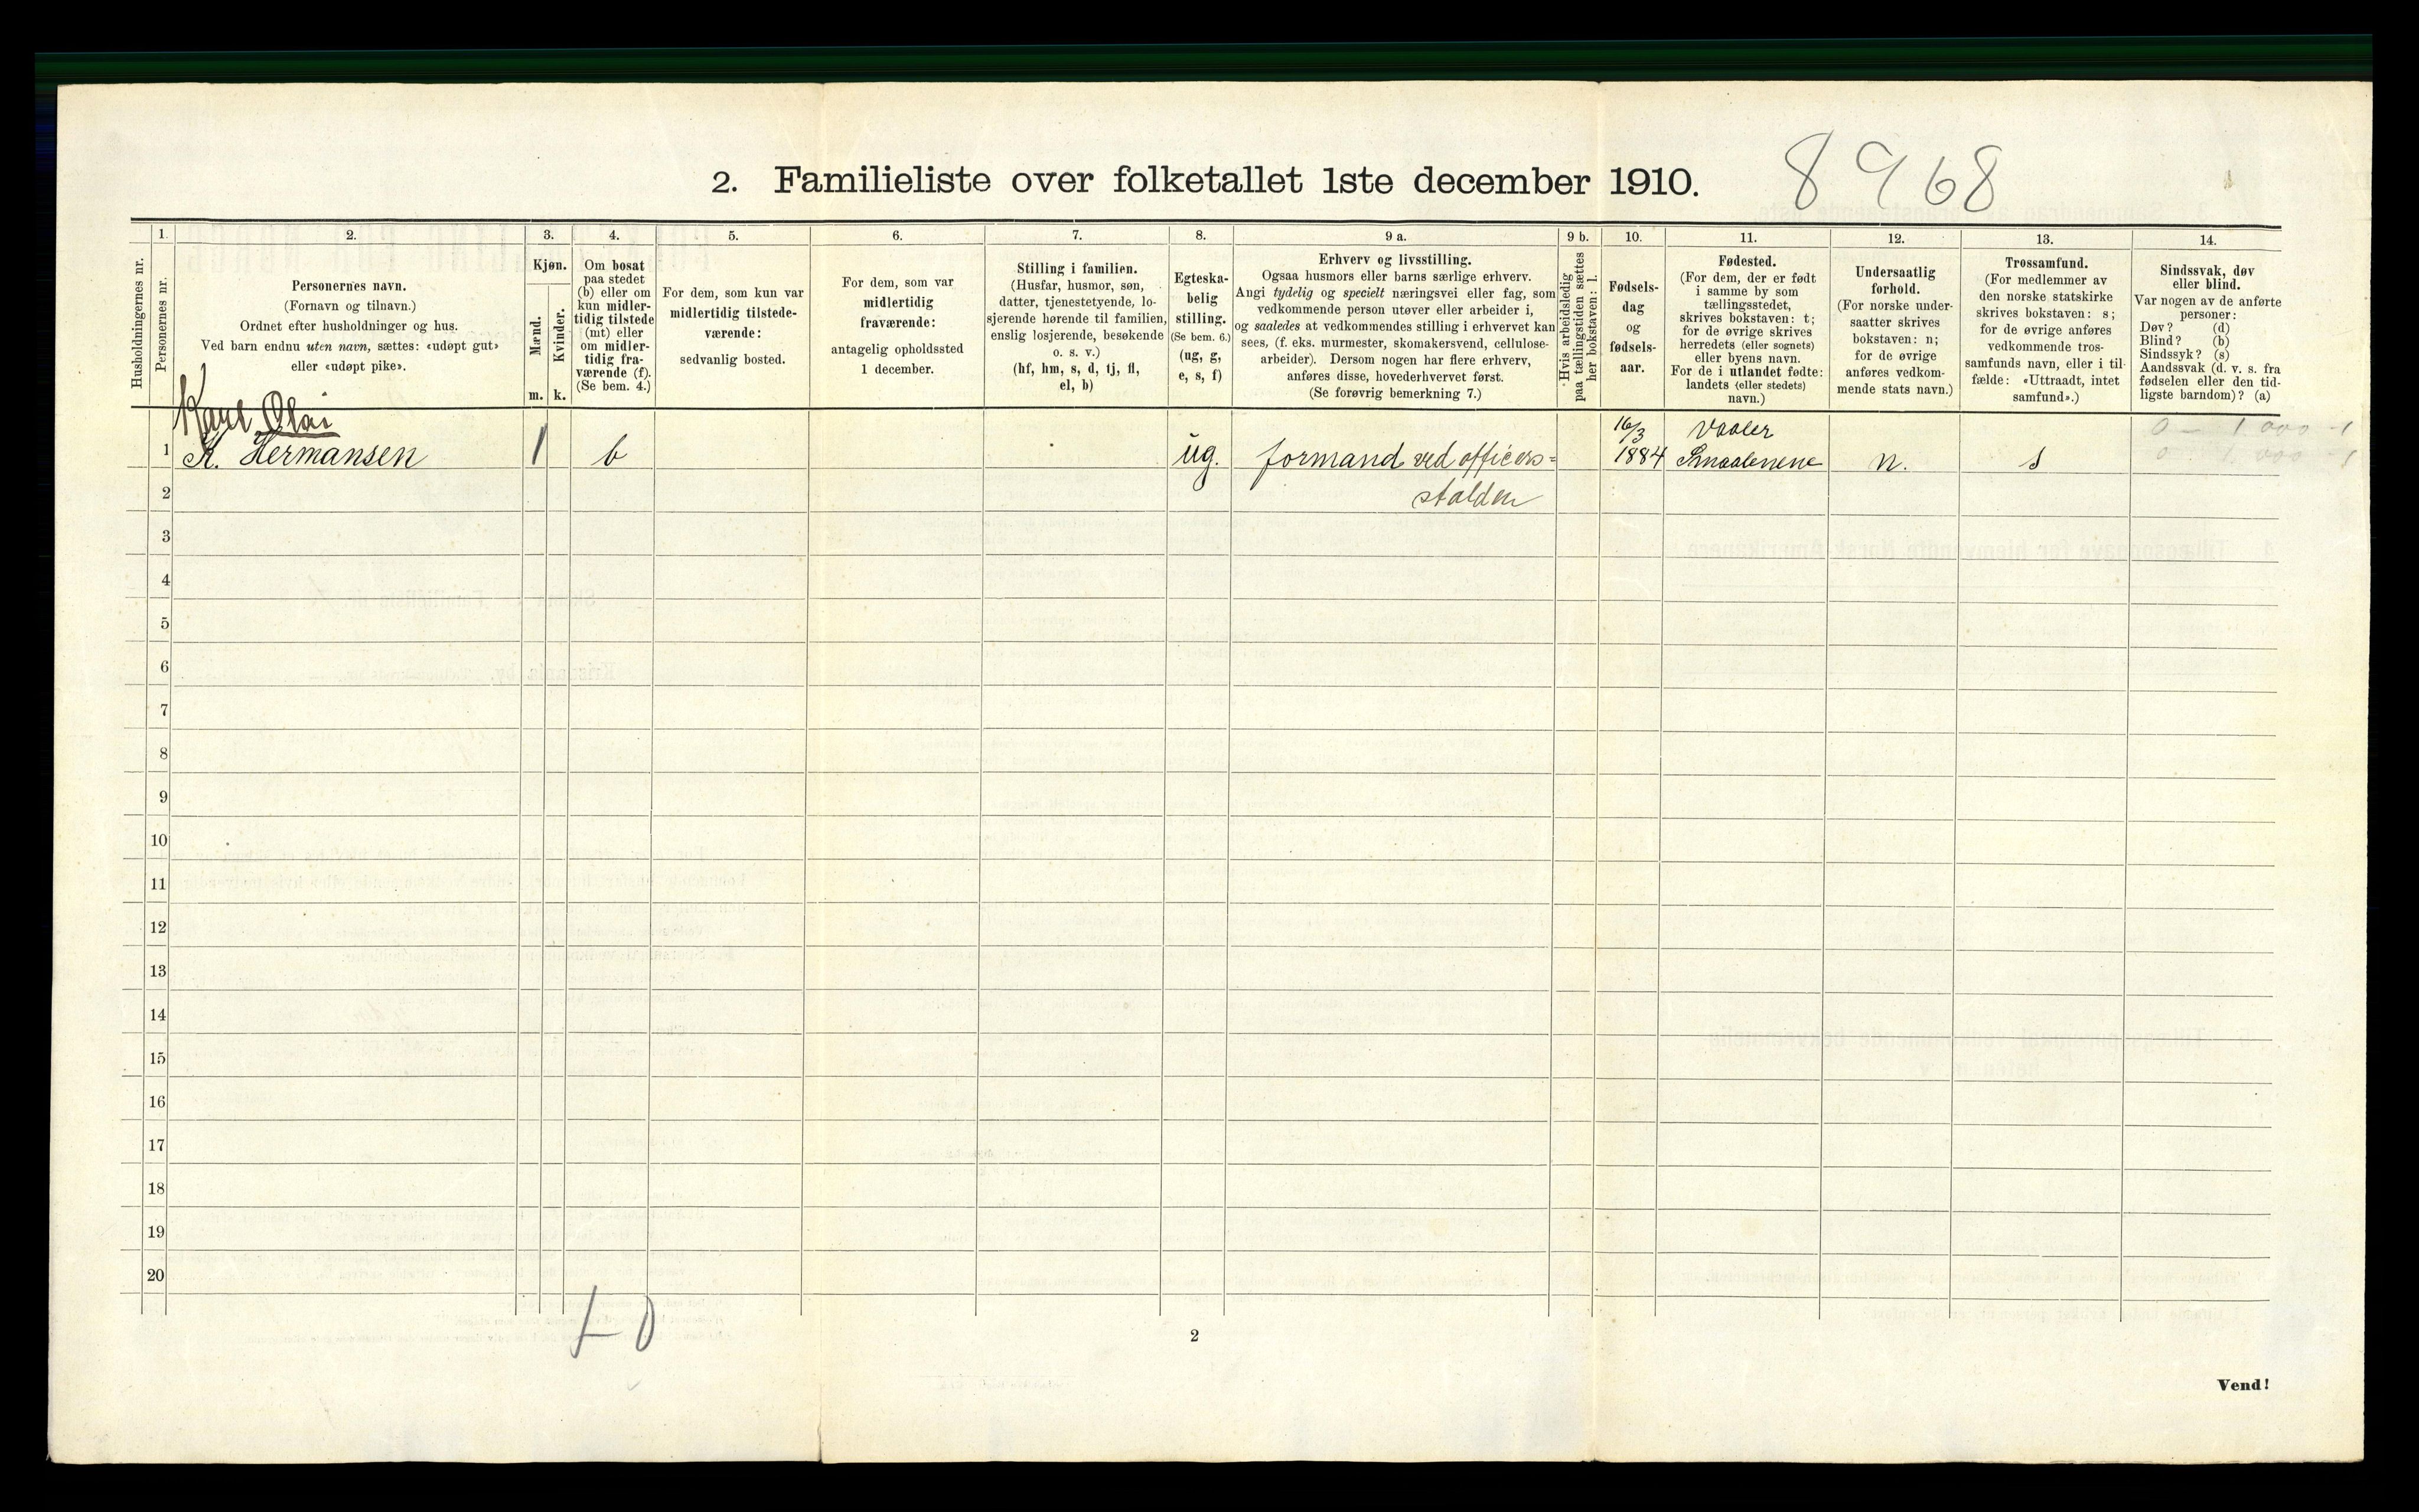 2. Familieliste over folketallet 1ste december 1910.
8968
Husholdningernes nr.
1.
Personernes nr.
2.
Personernes navn.
(Fornavn og tilnavn.)
Ordnet efter husholdninger og hus.
Ved barn endnu uten navn, sættes: «udøpt gut»
eller «udøpt pike».
3.
Kjøn.
Mænd.
Kvinder.
m.
k.
4.
Om bosat
paa stedet
(b) eller om
kun midler-
tidig tilstede
(mt) eller
om midler-
tidig fra-
værende (f).
(Se bem. 4.)
5.
For dem, som kun var
midlertidig tilstede-
værende:
sedvanlig bosted.
6.
For dem, som var
midlertidig
fraværende:
antagelig opholdssted
1 december.
7.
Stilling i familien.
(Husfar, husmor, søn,
datter, tjenestetyende, lo-
sjerende hørende til familien,
enslig losjerende, besøkende
o. s. v.)
(hf, hm, s, d, tj, fl,
el, b)
8.
Egteska-
belig
stilling.
(Se bem. 6.)
(ug, g,
e, s, f)
9 a.
Erhverv og livsstilling.
Ogsaa husmors eller barns særlige erhverv.
Angi tydelig og specielt næringsvei eller fag, som
vedkommende person utøver eller arbeider i,
og saaledes at vedkommendes stilling i erhvervet kan
sees, (f. eks. murmester, skomakersvend, cellulose-
arbeider). Dersom nogen har flere erhverv,
anføres disse, hovederhvervet først.
(Se forøvrig bemerkning 7.)
9 b.
Hvis arbeidsledig
paa tællingstiden sættes
her bokstaven: l.
10.
Fødsels-
dag
og
fødsels-
aar.
11.
Fødested.
(For dem, der er født
i samme by som
tællingsstedet,
skrives bokstaven: t;
for de øvrige skrives
herredets (eller sognets)
eller byens navn.
For de i utlandet fødte:
landets (eller stedets)
navn.)
12.
Undersaatlig
forhold.
(For norske under-
saatter skrives
bokstaven: n;
for de øvrige
anføres vedkom-
mende stats navn.)
13.
Trossamfund.
(For medlemmer av
den norske statskirke
skrives bokstaven: s;
for de øvrige anføres
vedkommende tros-
samfunds navn, eller i til-
fælde: «Uttraadt, intet
samfund».)
14.
Sindssvak, døv
eller blind.
Var nogen av de anførte
personer:
Døv? (d)
Blind? (b)
Sindssyk? (s)
Aandssvak (d. v. s. fra
fødselen eller den tid-
ligste barndom)? (a)
Karl Olai
1 K. Hermansen 1 b ug. formand ved officers=
stalden
16/3
1884
Vaaler
Smaalenene
n.
s
0 – 1.000 – 1
0 – 1.000 – 1
2
3
4
5
6
7
8
9
10
11
12
13
14
15
16
17
18
19
20
2
Vend!